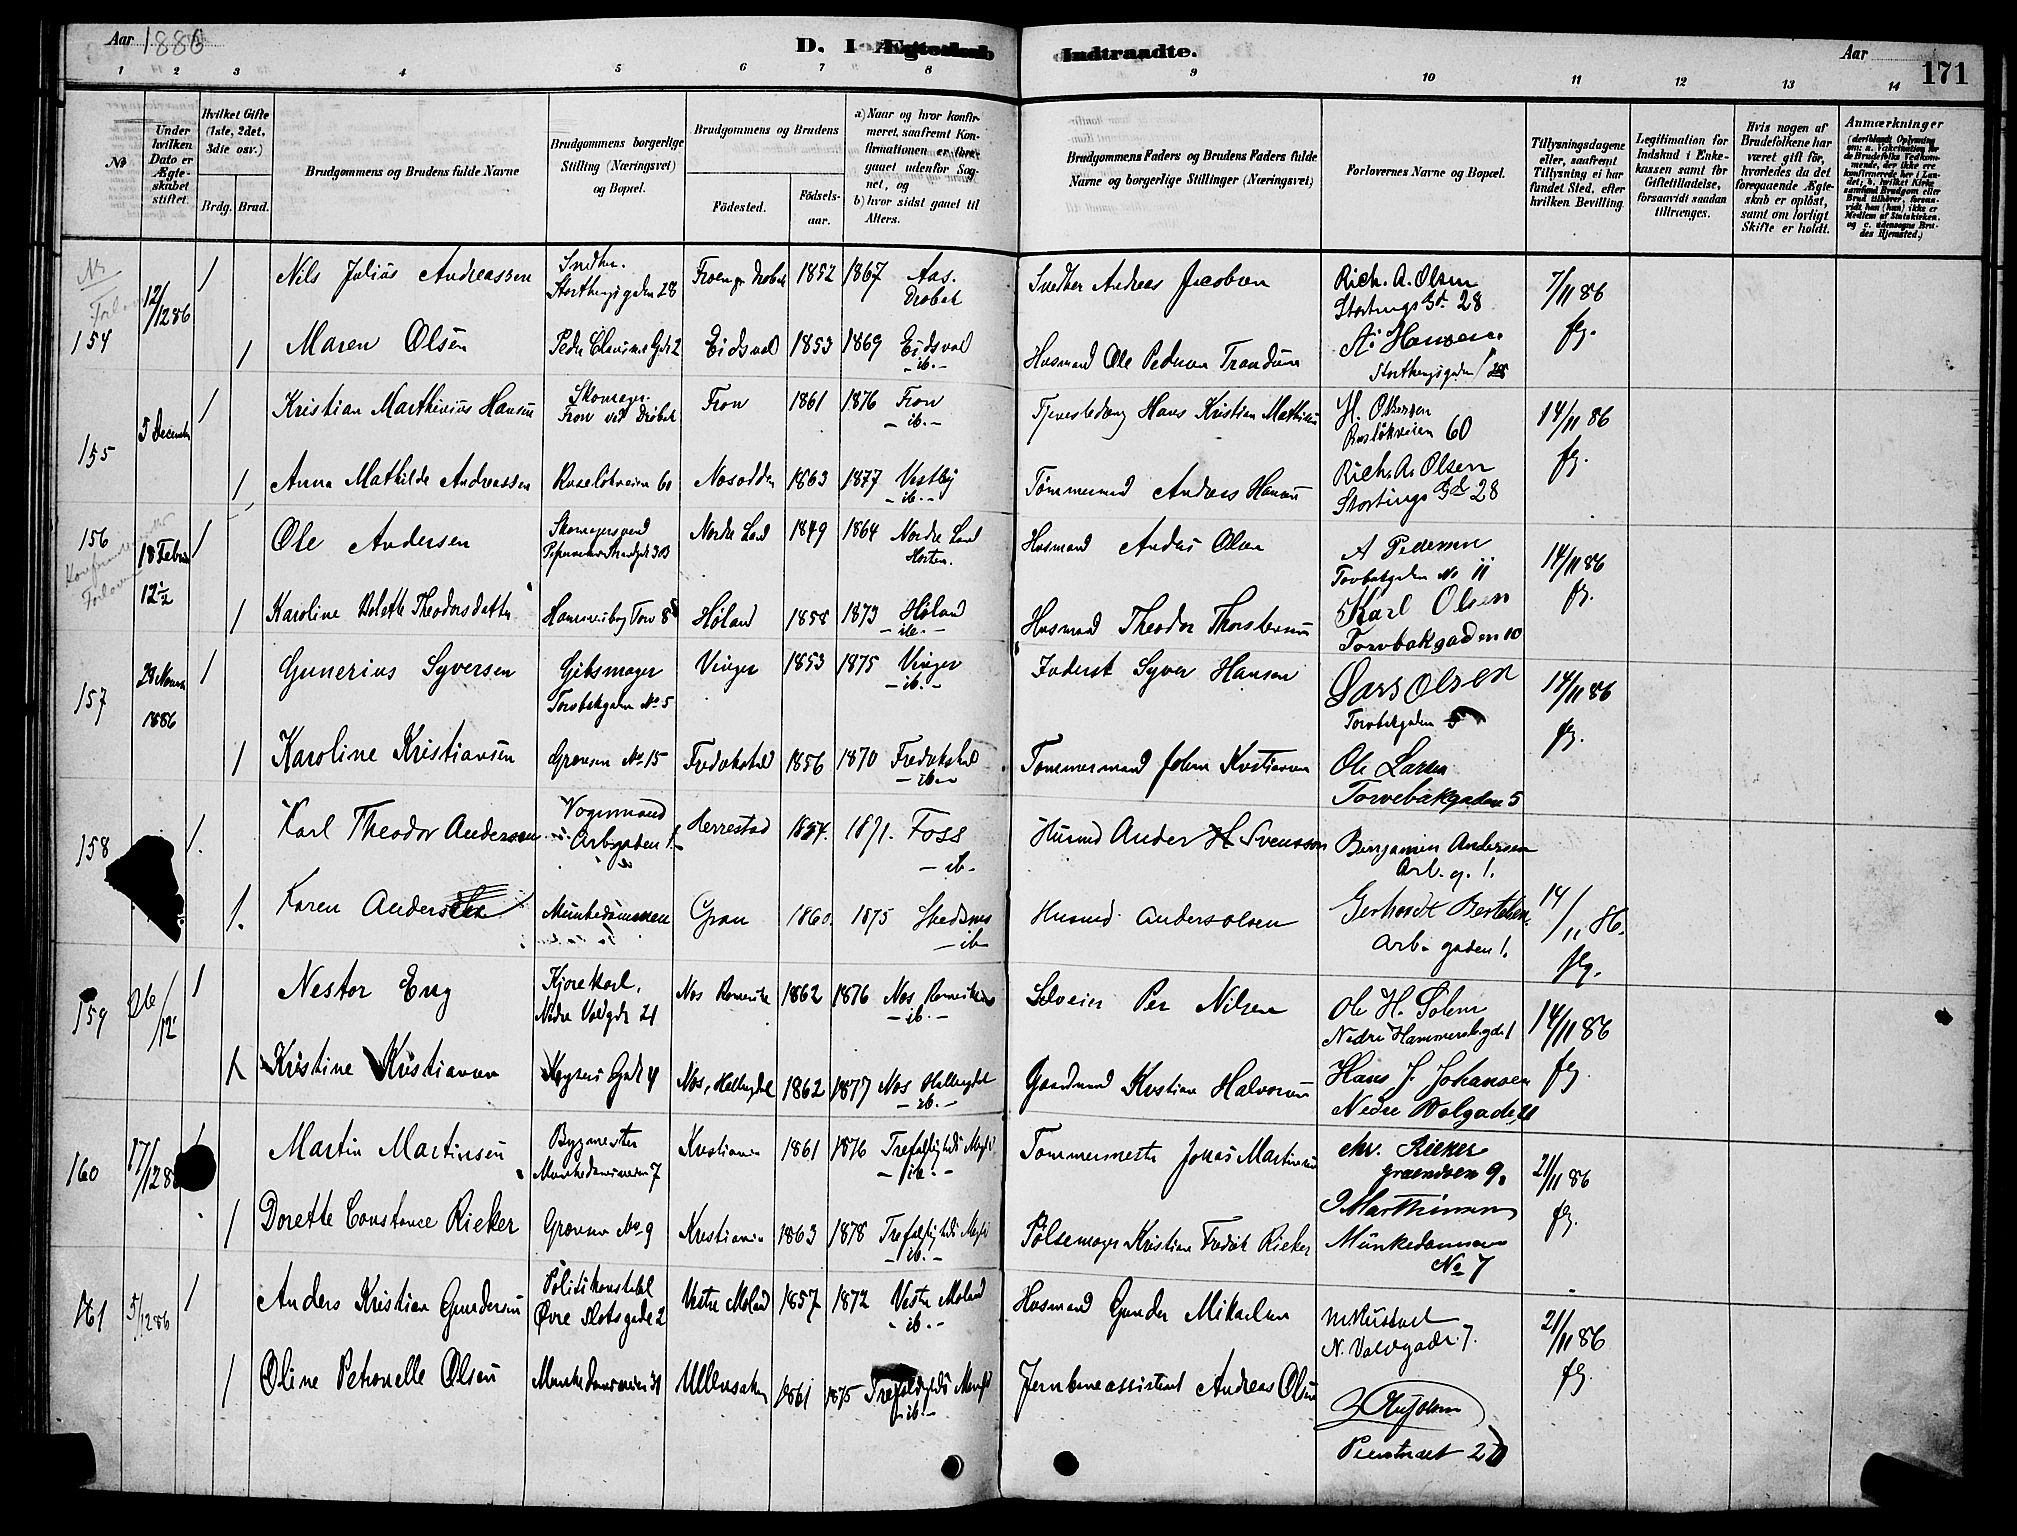 Aar 1886
D. I Ægteskab Indtraadte.
Aar
171
1 2 3 4 5 6 7 8 9 10 11 12 13 14
No
Under hvilken Dato er Ægteskabet stiftet.
Hvilket Gifte (1ste, 2det, 3die osv.)
Brdg. Brud.
Brudgommens og Brudens fulde Navne
Brudgommens borgerlige Stilling (Næringsvei) og Bopæl.
Brudgommens og Brudens
Fødested.
Fødselsaar.
a) Naar og hvor konfirmeret, saafremt Konfirmationen er foregaaet udenfor Sognet, og
b) hvor sidst gaaet til Alters.
Brudgommens Faders og Brudens Faders fulde Navne og borgerlige Stillinger (Næringsvei)
Forlovernes Navne og Bopæl.
Tillysningsdagene eller, saafremt Tillysning ei har fundet Sted, efter hvilken Bevilling
Legitimation for Indskud i Enkekassen samt for Giftetilladelse, forsaavidt saadan tiltrænges.
Hvis nogen af Brudefolkene har været gift før, hvorledes da det foregaaende Ægteskab er opløst, samt om lovligt Skifte er holdt.
Anmærkninger
154 12/12 86 1 Nils Julius Andreassen Storthingsgaden 28 1852 1867 Aas. Drøbak
Andreas Jacobsen Rich. A. Olsen Stortings Gd. 28 7/11 86 fg.
1 Maren Olsen Eidsvol 1853 1869 Eidsvol - ib. -
Husmand Ole Pedersen A. Hansen Storthingsgaden 28
155 5 December 1 Kristian Marthinius Hansen Skomager. Fron ved Drøbak Fron 1861 1876 Fron - ib. -
Hans Kristian Mathisen Ruseløkveien 60 14/11 86 fg.
1 Anna Mathilde Andreassen Ruseløkveien 60 Nesodden 1863 1877 Vestby - ib. -
Tømmermand Anders Hansen Rich. A. Olsen Stortings Gd 28
156 18 Februar 1 Ole Andersen Skomagersvend Nordre Land 1849 1864 Nordre Land Horten.
Husmand Anders Olsen A Pedersen Torvbakgaden No 11 14/11 86 fg.
12 1/2 1 Karoline Theodorsdatter Hammersborg Torv 8 Høland 1858 1873 Høland - ib. -
Husmand Theodor Thorstensen Karl Olsen Torvbakgaden 10
157 1886 1 Gunerius Syversen Gibsmager Torvbakgaden No 5 Vinger 1853 1875 Vinger - ib. -
Inderst Syver Hansen Lars Olsen Torvbakgaden 5 14/11 86 fg.
1 Karoline Kristiansen Grønsen No 15 Fredrikstad 1856 1870 Fredrikstad - ib. -
Tømmermand Johan Kristiansen Ole Larsen Torvebakgaden 5
158 1. Karl Theodor Andersen Vognmand Arbgaden 1. Herrestad 1854. 1871. Foss - ib.
Husmd Svensson Benjamin Andersen Arb. g. 1.
1. Karen Anders Munkedammen Gran 1860. 1875 Skedsmo - ib
Husmd. Anders Olsen Gerhardt Bertelsen Arb. gaden 1. 14/11 86. fg.
159 26/12 1 Nestor Eng Kjørekarl. Nedre Voldgd 21 Nes Romerike 1862 1876 Nes Romerike - ib. -
Selveier Per Nilsen Ole H. Solem Nedre Hammersbgd 1 14/11 86
1 Kristine Kristiansen Keysers Gade 4 Nes, Hallingdal 1862 1877 Nes Hallingdal - ib. -
Gaardmand Kristian Halvorsen Hans J. Johansen Nedre Volgade 21 fg.
160 17/12 86 1 Martin Martinsen Bygmester Munkedamsveien 7 Kristiania 1861 1876 Trefoldigheds Menighed - ib. -
Tømmermester Jonas Martinsen Chr. Rieker grændsen 9. 21/11 86
1 Dorette Constance Rieker Grænsen No 9 Kristiania 1863 1878 Trefoldigheds Menighed - ib. -
Pølsemager Kristian Fredrik Rieker Marthinsen Munkedammen No 7 fg.
161 5/12 86 1 Anders Kristian Gundersen Politikonstabel Øvre Slotsgade 2 Vestre Moland 1857 1872 Vestre Moland - ib. -
Husmand Gunder Mikaelsen N. Voldgade 7. 21/11 86
1 Oline Petronelle Olsen Munkedamsveien 31 Ullensaker 1861 1875 Trefoldigheds Menighed - ib. -
Jernbaneassistent Andreas Olsen Pilestrædet 27 fg.